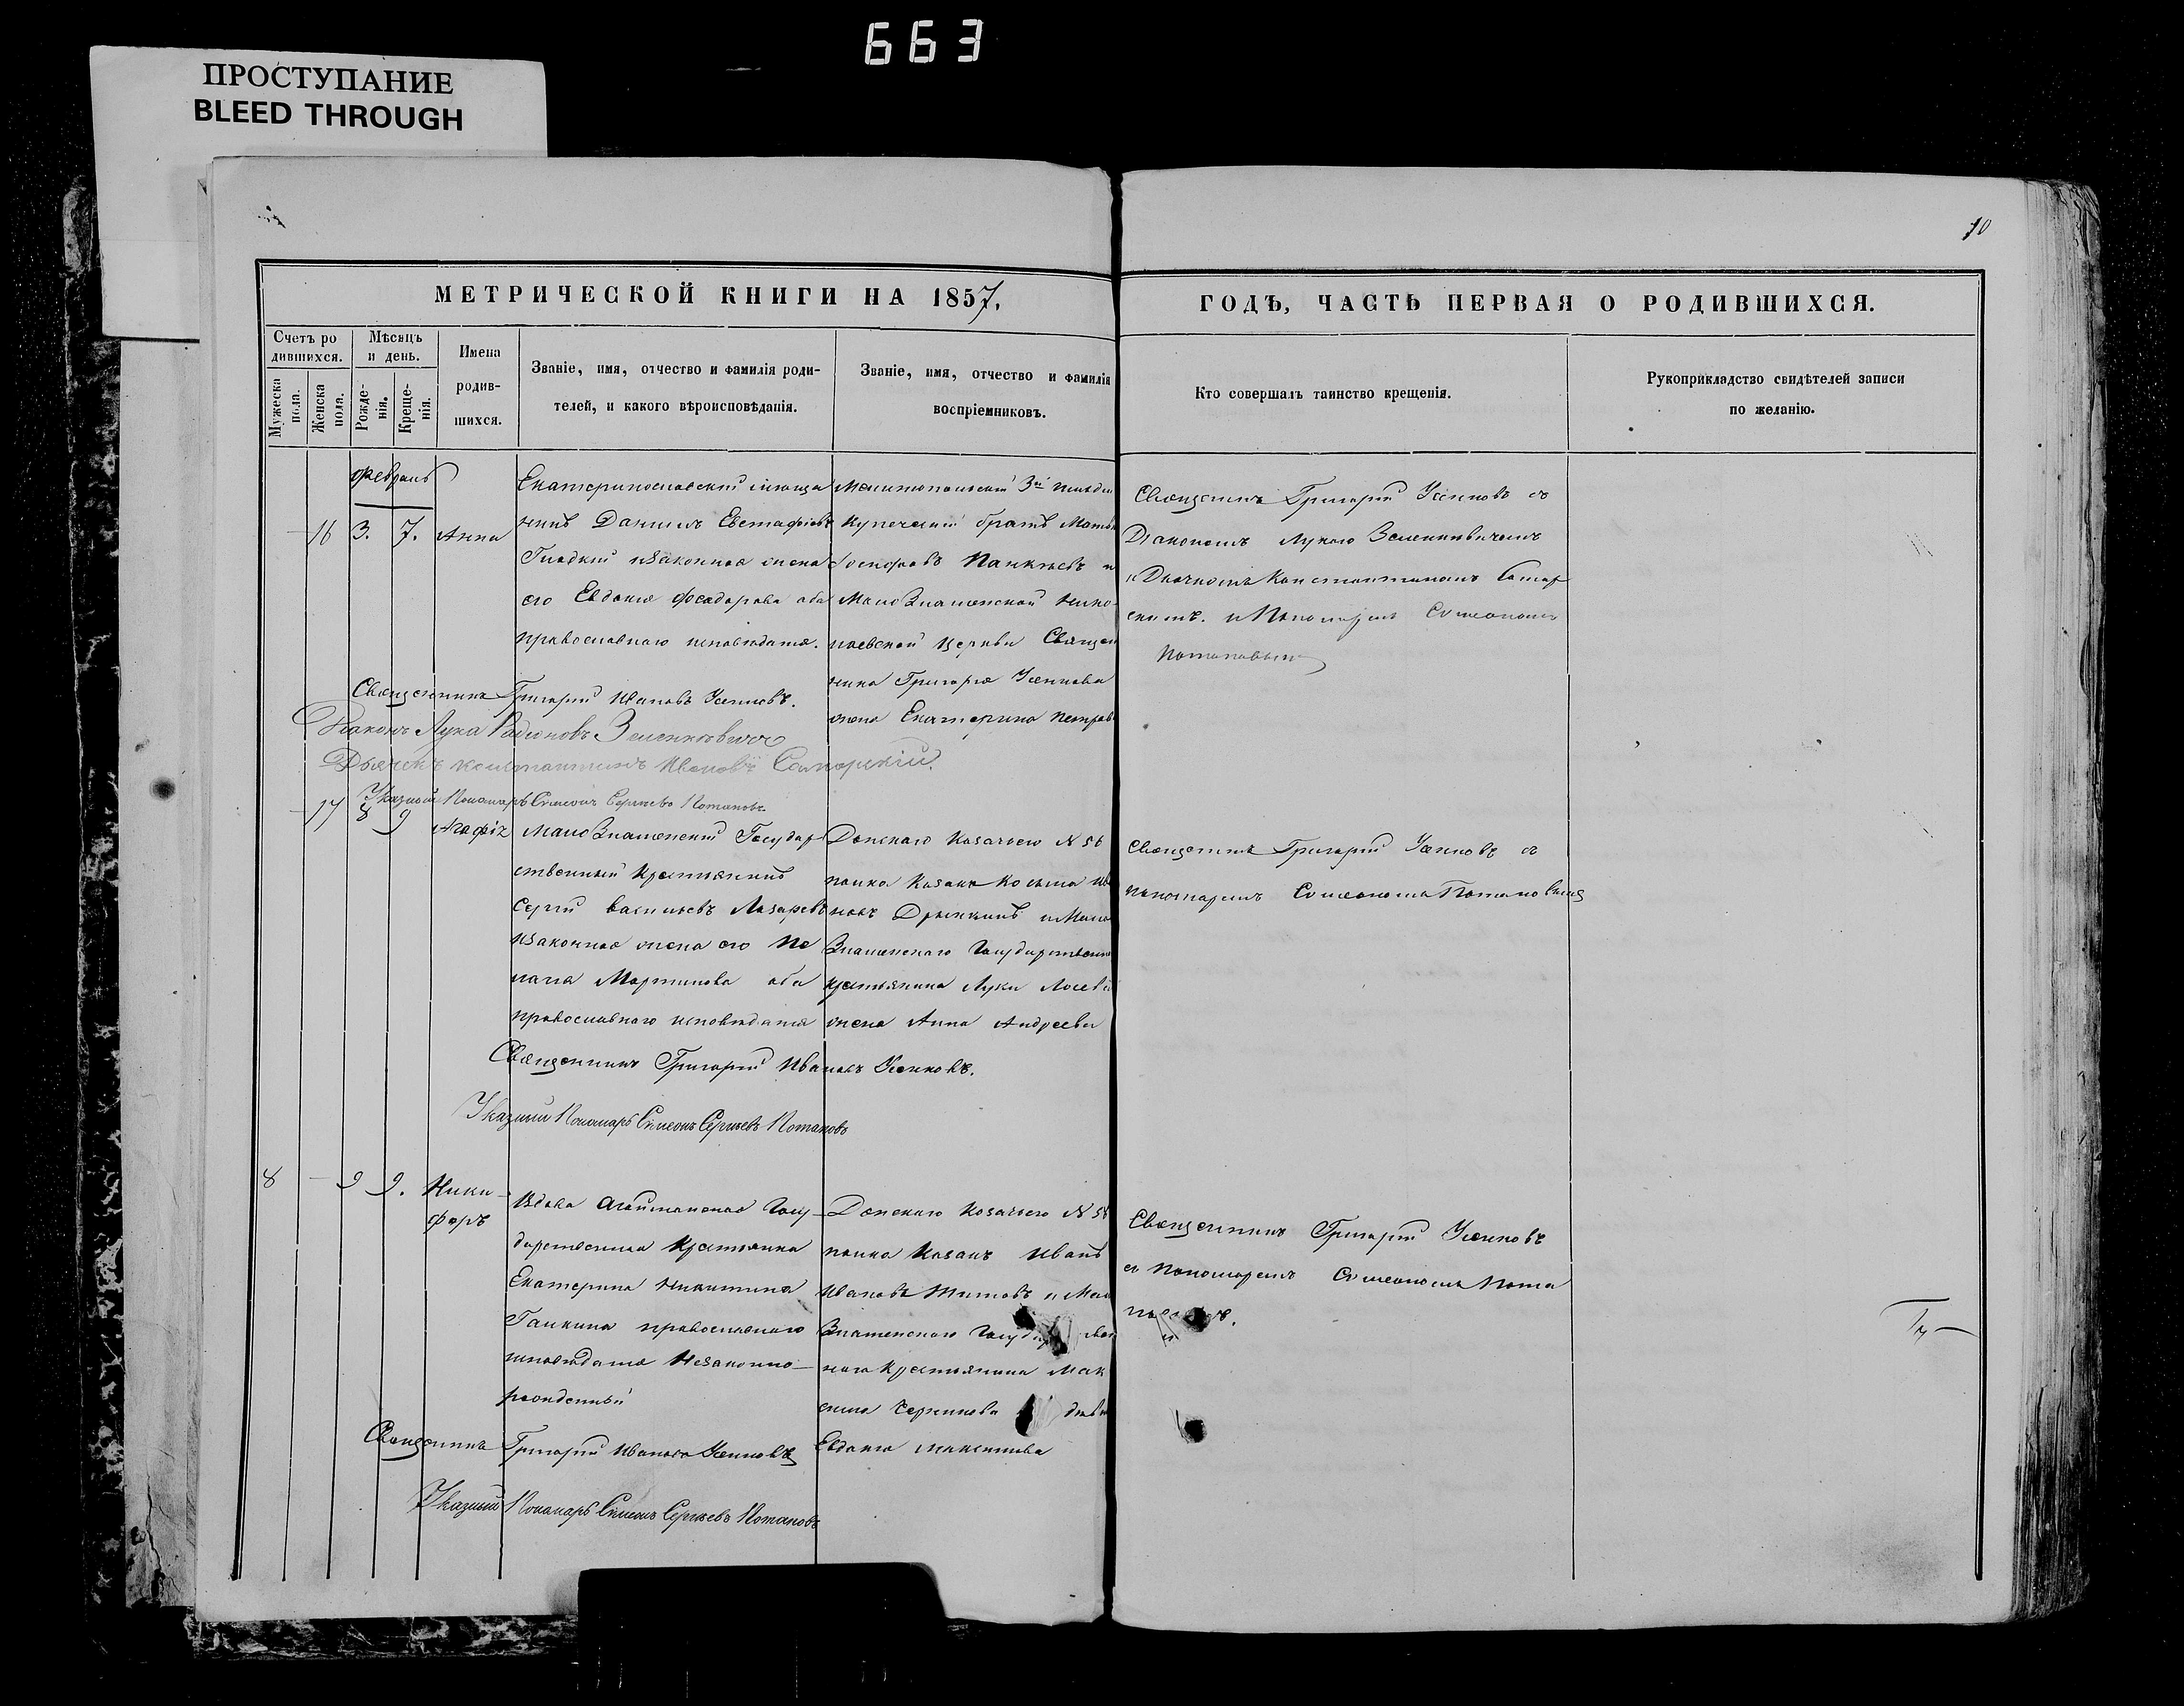 663
ПРОСТУПАНИЕ
BLEED THROUGH
10
МЕТРИЧЕСКОЙ КНИГИ НА 1857.
ГОДЪ, ЧАСТЬ ПЕРВАЯ О РОДИВШИХСЯ.
Счетъ ро
дившихся.
Мужеска
пола.
Женска
пола.
Мѣсяцъ
и день.
Рожде-
нія.
Креще-
нія.
Имена
родив-
шихся.
Званіе, имя, отчество и фамилія роди-
телей, и какого вѣроисповѣданія.
Званіе, имя, отчество и фамилія
воспріемниковъ.
Кто совершалъ таинство крещенія.
Рукоприкладство свидѣтелей записи
по желанію.
Февраль
16 3. 7. Анна
Екатеринославский мѣща
нинъ Даниилъ Евстафіевъ
Гладкий изаконная жена
его Евдокія Феодорова оба
православнаго исповѣданія.
Мелитопольский 3й гильдіи
купеческий братъ
и
МалоЗнаменской Нико
лаевской Церкви Священ
ника Григорія Усенкова
жена Екатерина Петрова
Священникъ Григорий Усенковъ съ
Діакономъ Лукою Зеленкевичемъ
и Дьячкомъ Константиномъ
и Пономаремъ Симеономъ
Потаповымъ
Священникъ Григорий Ивановъ Усенковъ.
Діаконъ Лука Родионовъ Зеленкевичъ
Дьячекъ Константинъ Ивановъ
Указный Пономарь Симеонъ Сергѣевъ Потаповъ.
17 8 9 Агафія
МалоЗнаменский Государ
ственный Крестьянинъ
Сергій Васильевъ Лазаревъ
изаконная жена его Пе
лагія Мартинова оба
православнаго исповѣданія
Донскаго Казачьего N 56
полка Казакъ Козьма Ива
новъ и Мало
Знаменскаго Государственна
крестьянина Луки
жена Анна Андреева
Священникъ Григорий Усенковъ съ
пономаремъ Симеономъ Потаповымъ
Священникъ Григорий Ивановъ Усенковъ.
Указный Пономарь Симеонъ Сергѣевъ Потаповъ
8 — 9 9. Ники
форъ
Вдова Агайманская Госу
дарственная Крестьянка
Екатерина Никитина
Галкина православнаго
исповѣданія Незаконно
рожденный
Донскаго Казачьего N 56
полка Казакъ Иванъ
Ивановъ Титовъ и Мало
Знаменскаго
наго Крестьянина Мак
сима
Евдокія Максимова
Священникъ Григорий Усенковъ
съ Пономаремъ Симеономъ Пота
Священникъ Григорий Ивановъ Усенковъ
Указный Пономарь Симеонъ Сергѣевъ Потаповъ